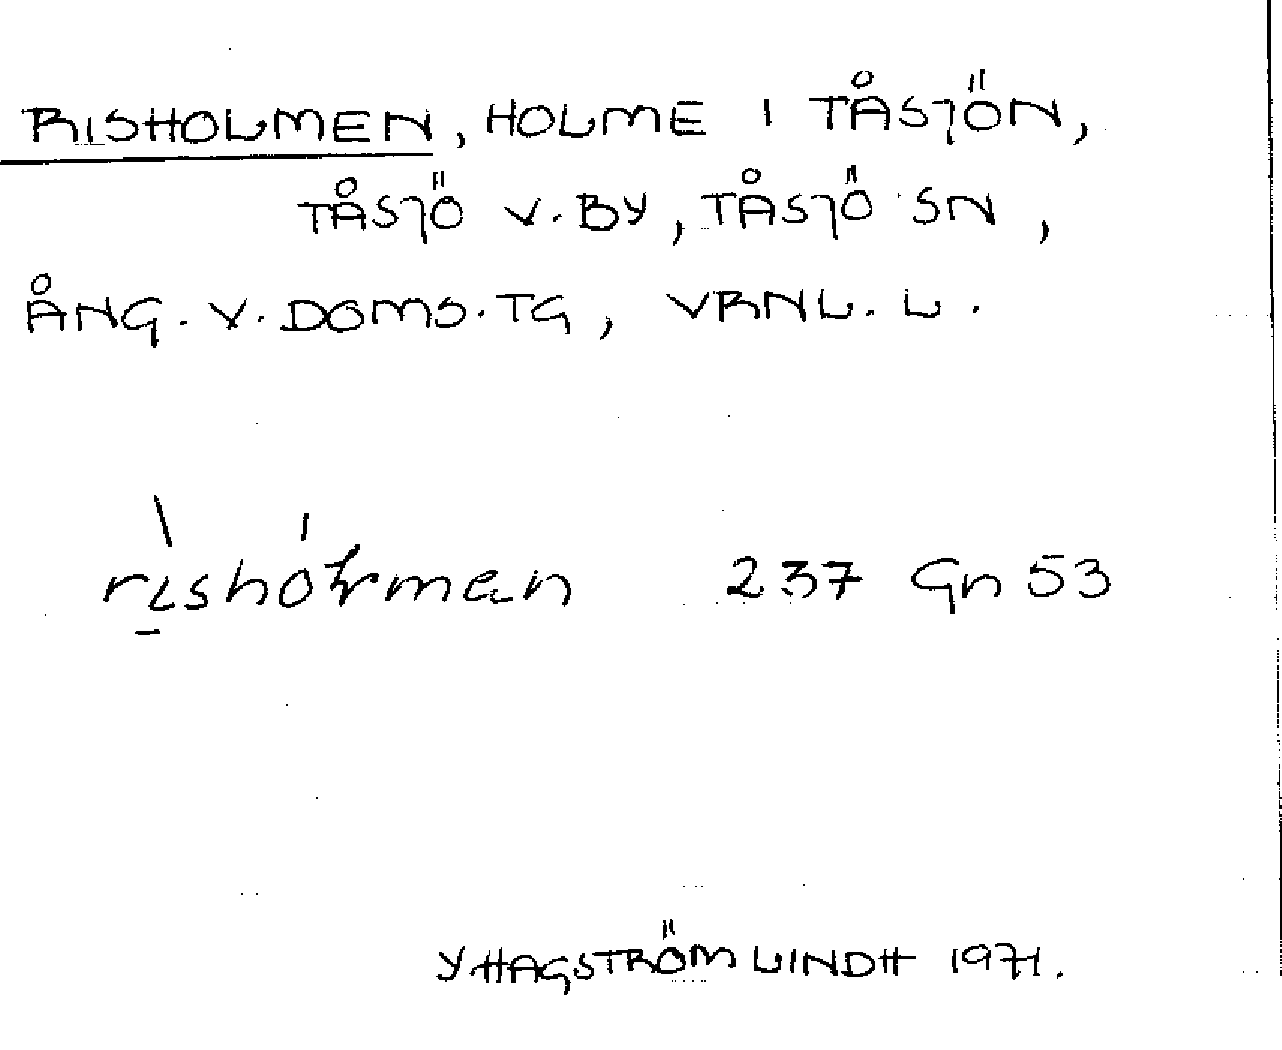 RISHOLMEN, HOLME I TÅSJÖN,
TÅSJÖ V. BY, TÅSJÖ SN,
ÅNG. V. DOMS. TG, VRNL. L.
237 Gn 53
Y HAGSTRÖM LINDH 1971.